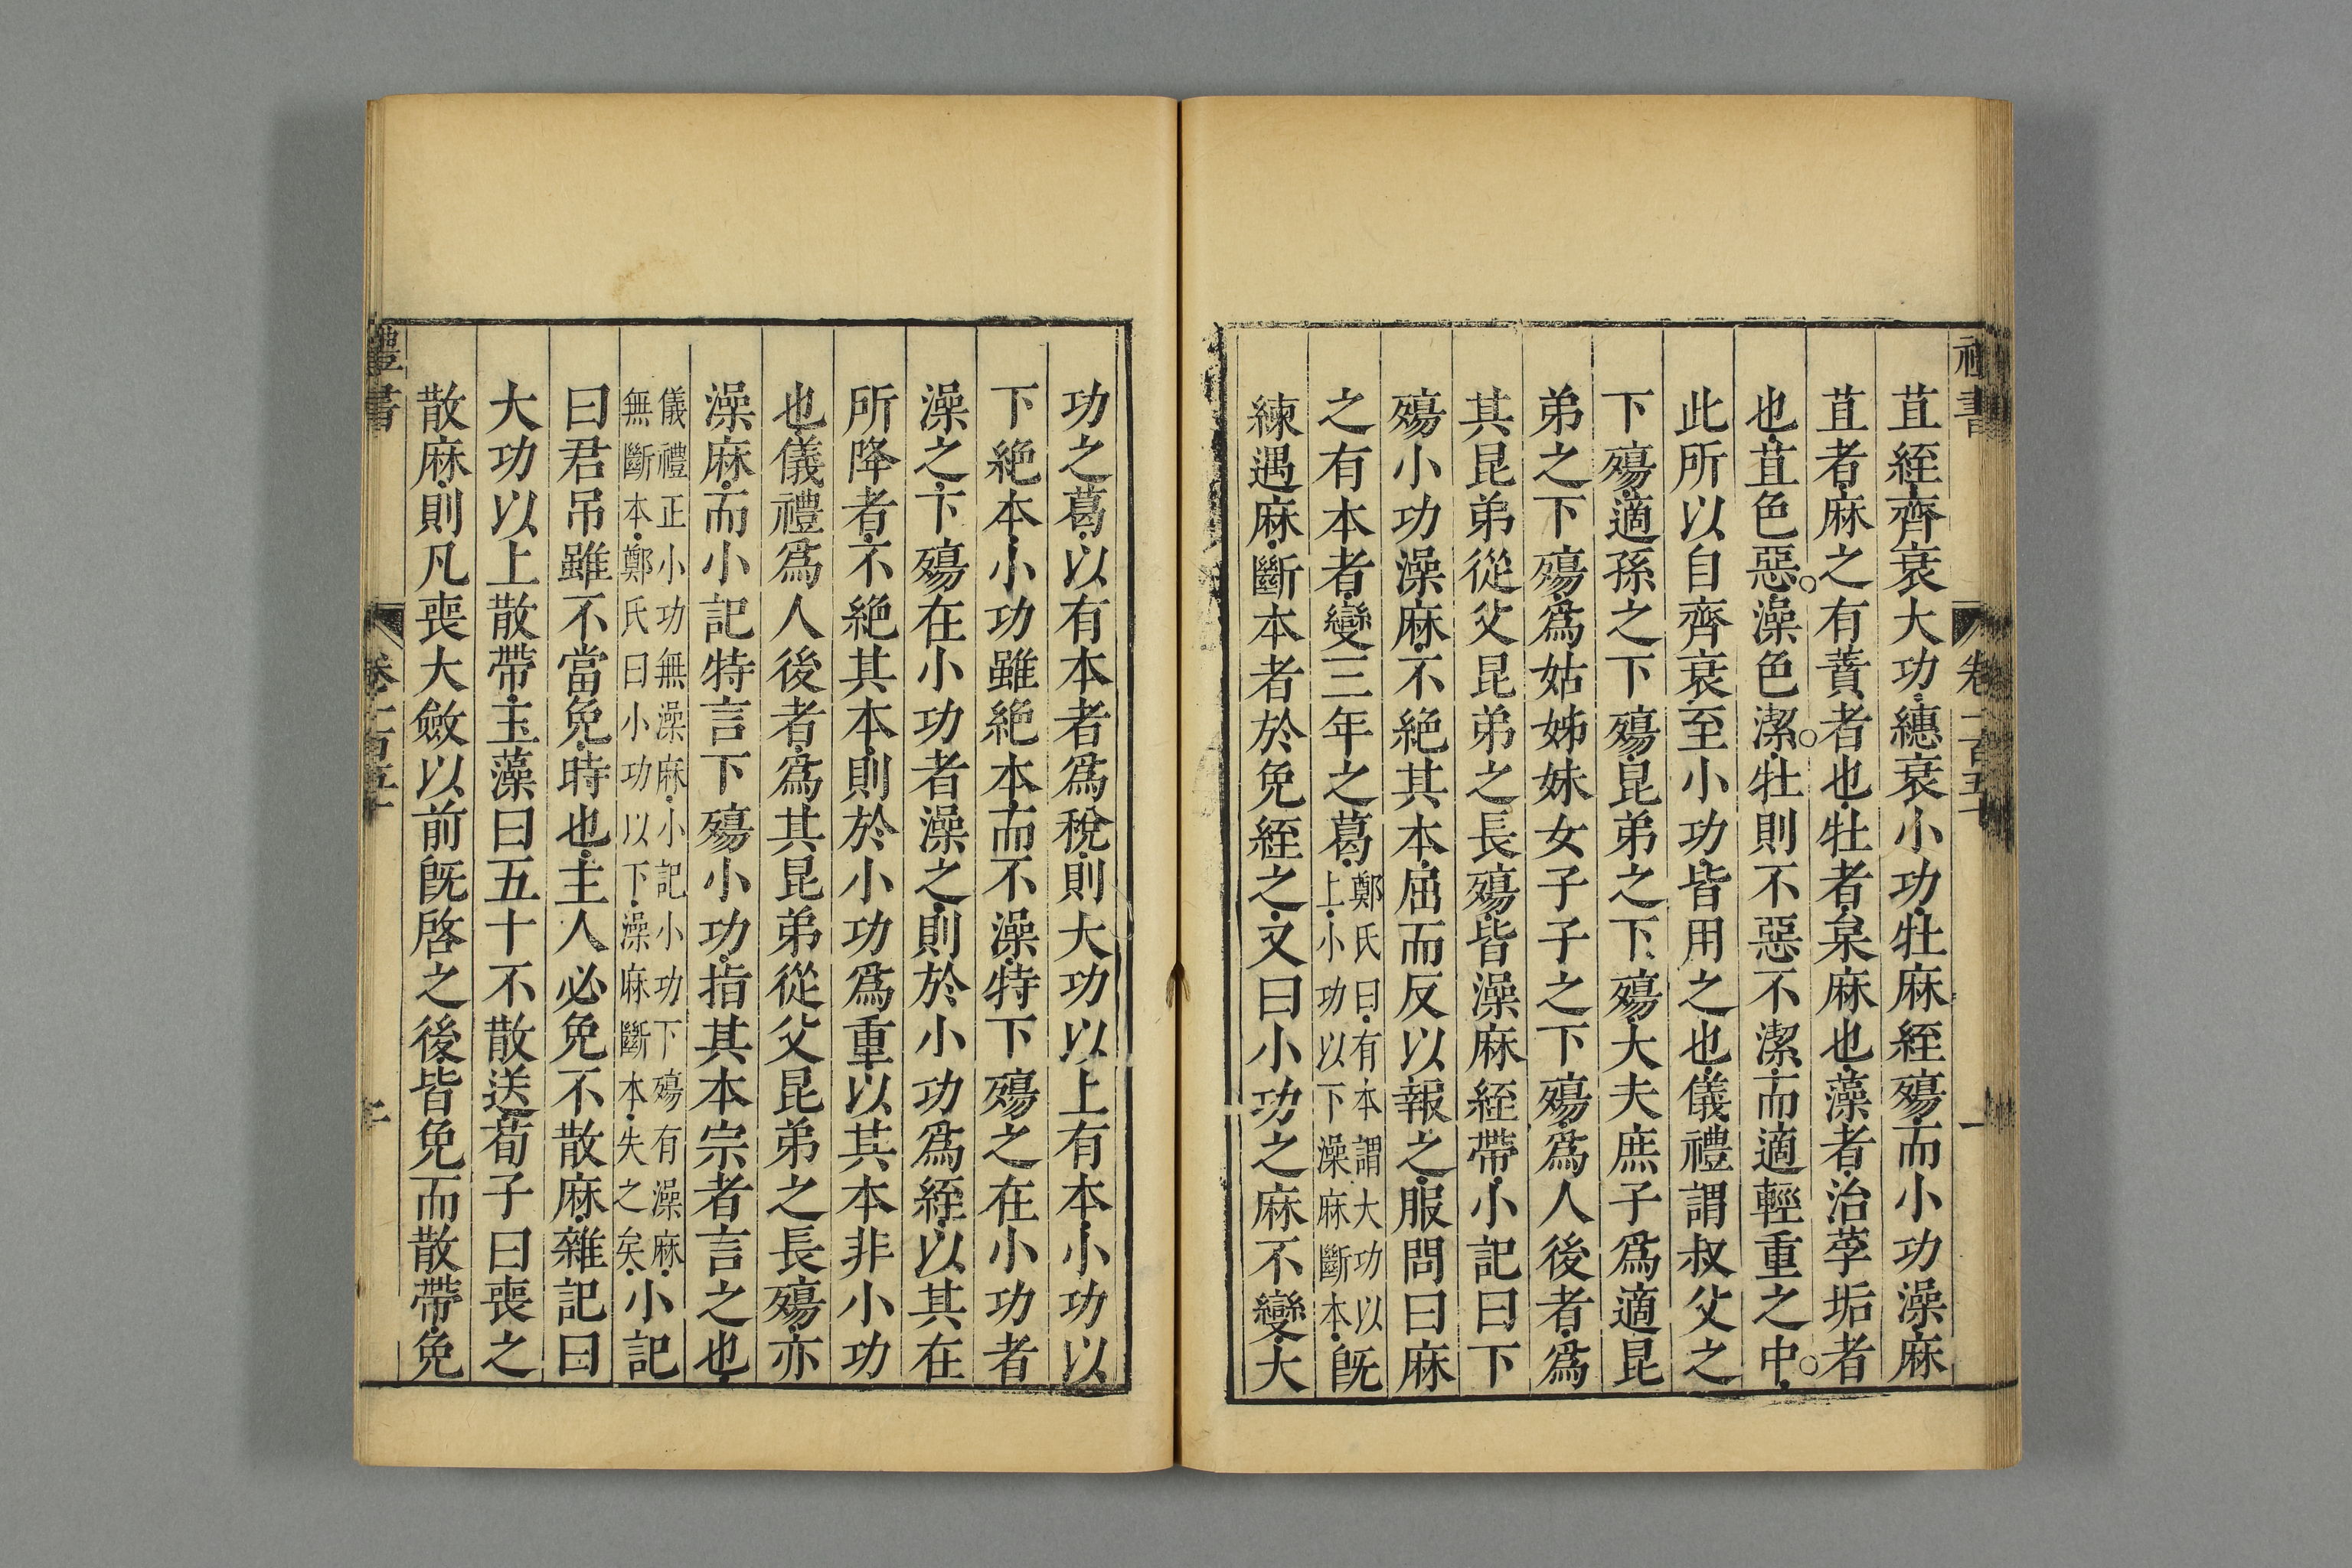 苴絰齊衰大功繐衰小功牡麻絰殤而小功澡麻
苴者麻之有蕡者也牡者枲麻也藻者治莩垢者
也苴色惡澡色潔牡則不惡不潔而適輕重之中
此所以自齊衰至小功皆用之也儀禮謂叔父之
下殤適孫之下殤昆弟之下殤大夫庶子爲適昆
弟之下殤爲姑姊妹女子子之下殤爲人後者爲
其昆弟從父昆弟之長殤皆澡麻絰帶小記曰下
殤小功澡麻不絕其本屈而反以報之服問曰麻
之有本者變三年之葛鄭氏曰有本謂大功以上小功以下澡麻斷本旣
練遇麻斷本者於免絰之文曰小功之麻不變大
功之葛以有本者爲稅則大功以上有本小功以
下絕本小功雖絕本而不澡特下殤之在小功者
澡之下殤在小功者澡之則於小功爲絰以其在
所降者不絕其本則於小功爲重以其本非小功
也儀禮爲人後者爲其昆弟從父昆弟之長殤亦
澡麻而小記特言下殤小功指其本宗者言之也
儀禮正小功無澡麻小記小功下殤有澡麻無斷本鄭氏曰小功以下澡麻斷本失之矣小記
曰君吊雖不當免時也主人必免不散麻雜記曰
大功以上散帶玉藻曰五十不散送荀子曰喪之
散麻則凡喪大斂以前旣啓之後皆免而散帶免
禮書
卷一百五十
一